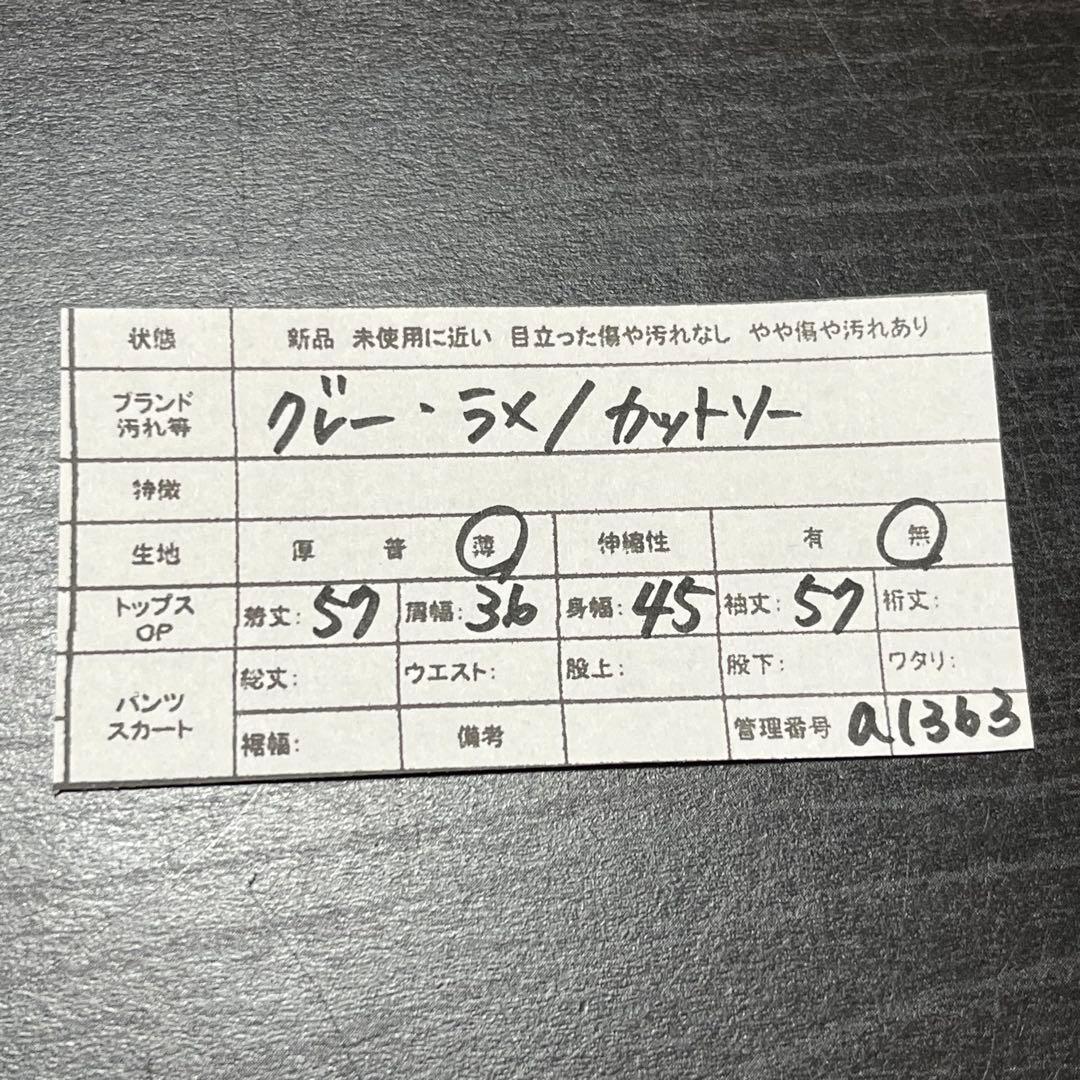 状態 新品 未使用に近い 目立った傷や汚れなし やや傷や汚れあり
ブランド
汚れ等
グレー・ラメ/カットソー
特徴
生地 厚 普 薄 伸縮性 有 無
トップス
OP
着丈:57 肩幅:36 身幅:45 袖丈:57 裄丈:
パンツ
スカート
総丈: ウエスト: 股上: 股下: ワタリ:
裾幅: 備考 管理番号 a1363